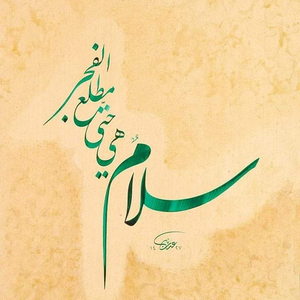 سلامٌ
هي حتى
مطلع
الفجر